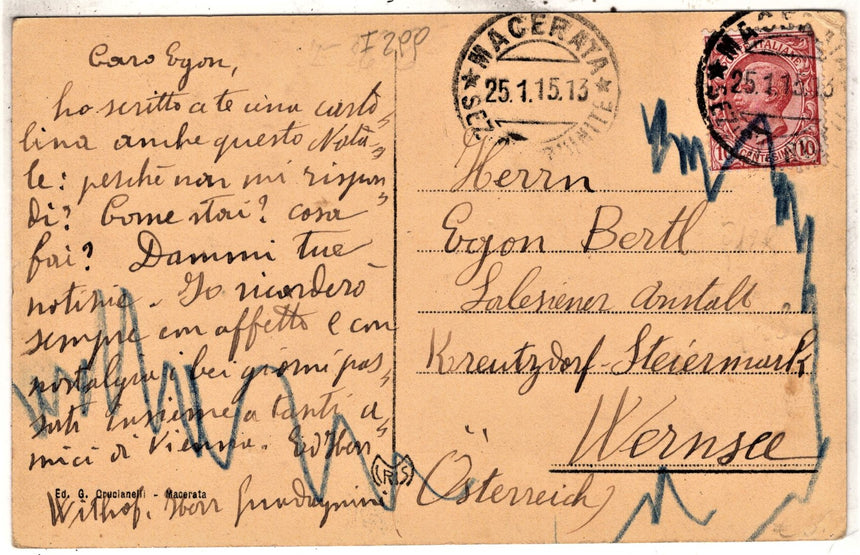 I 2pp
Caro Egon,
ho scritto a te una carto-
lina anche questo Nata-
le: perchè non mi rispon-
di? Come stai? cosa
fai? Dammi tue
notizie. Io ricorderò
sempre con affetto e con
nostalgia i bei giorni pas-
sati insieme a tanti a-
mici di Vienna. Ed Herr
Withof. Herr
Ed. G. Crucianelli - Macerata
CRS
MACERATA
25.1.15.13
MACERATA
25.1.15.13
10 CENTESIMI 10
Herrn
Egon Bertl
Salesiener Anstalt
Kreutzdorf-Steiermark
Wernsee
Österreich